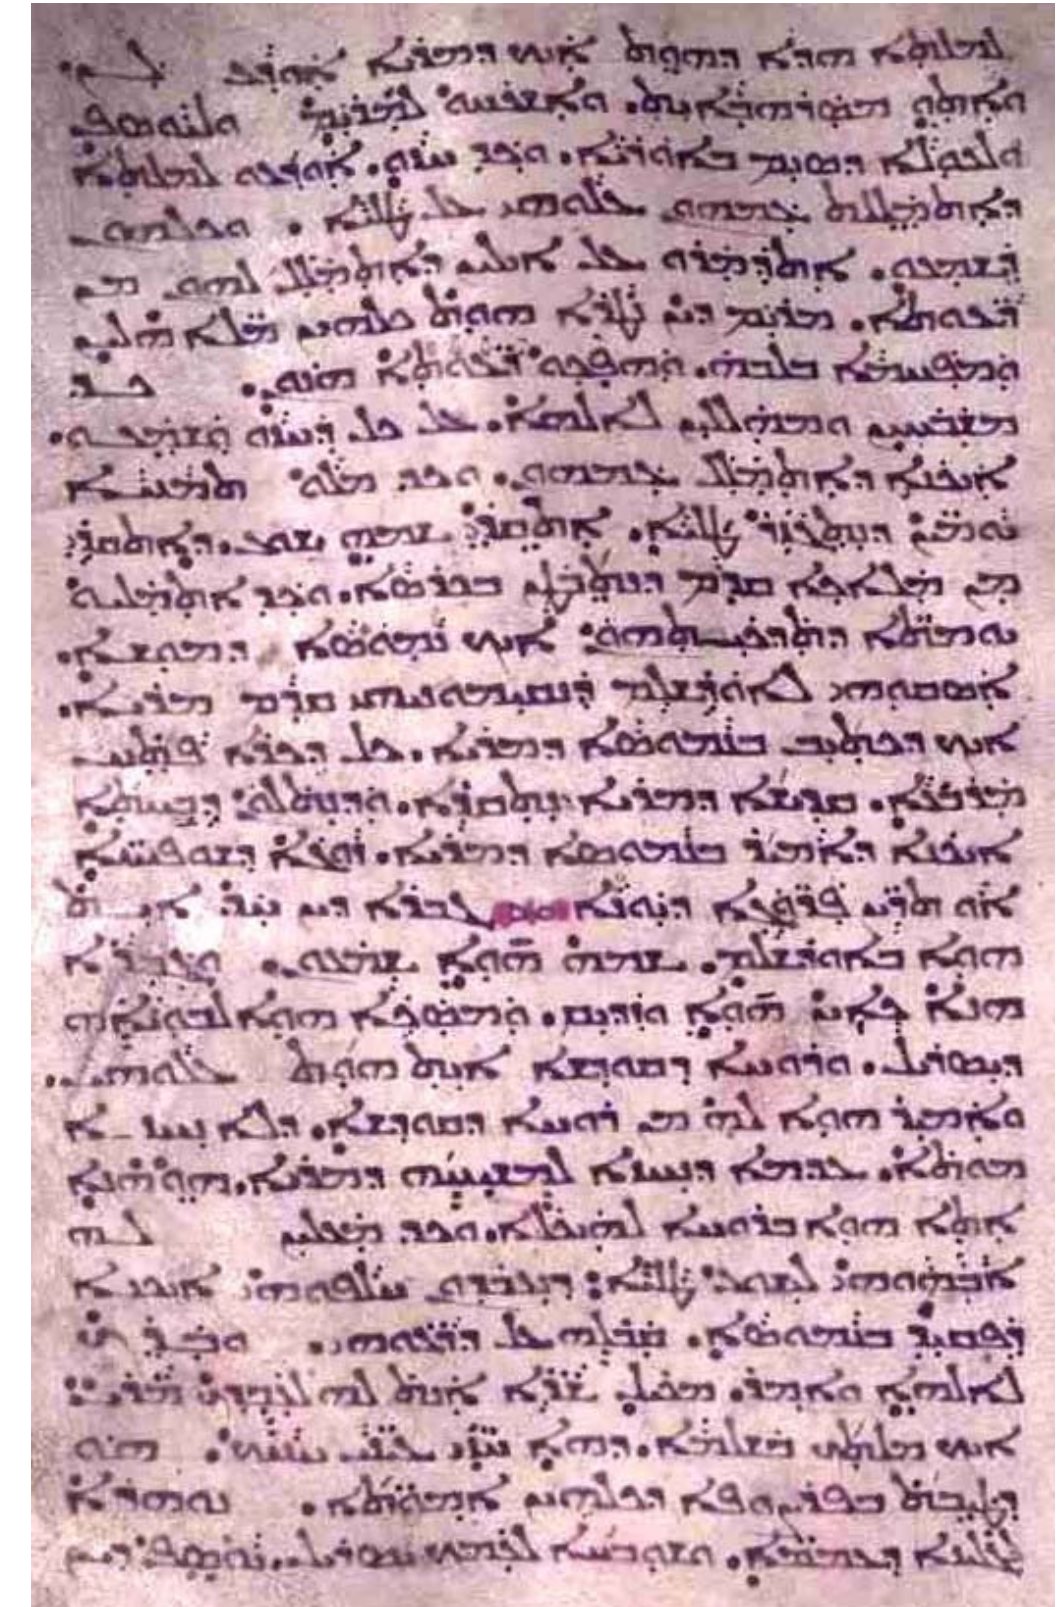 ܠܡܠܬܐ ܗܕܐ ܕܗܘܬ ܐܝܟ ܕܡܪܝܐ ܐܘܕܥ ܠܢ܀
ܘܐܬܘ ܡܣܪܗܒܐܝܬ. ܘܐܫܟܚܘ ܠܡܪܝܡ ܘܠܝܘܣܦ
ܘܠܥܘܠܐ ܕܣܝܡ ܒܐܘܪܝܐ. ܘܟܕ ܚܙܘ. ܐܘܕܥܘ ܠܡܠܬܐ
ܕܐܬܡܠܠܬ ܥܡܗܘܢ ܥܠܘܗܝ ܥܠ ܛܠܝܐ. ܘܟܠܗܘܢ
ܕܫܡܥܘ. ܐܬܕܡܪܘ ܥܠ ܐܝܠܝܢ ܕܐܬܡܠܠ ܠܗܘܢ ܡܢ
ܪܥܘܬܐ. ܡܪܝܡ ܕܝܢ ܢܛܪܐ ܗܘܬ ܟܠܗܝܢ ܡܠܐ ܗܠܝܢ
ܘܡܦܚܡܐ ܒܠܒܗ. ܘܗܦܟܘ ܪܥܘܬܐ ܗܢܘܢ. ܟܕ
ܡܫܒܚܝܢ ܘܡܗܠܠܝܢ ܠܐܠܗܐ. ܥܠ ܟܠ ܕܚܙܘ ܘܫܡܥܘ.
ܐܝܟܢܐ ܕܐܬܡܠܠ ܥܡܗܘܢ. ܘܟܕ ܡܠܘ ܬܡܢܝܐ
ܝܘܡܝܢ ܕܢܬܓܙܪ ܛܠܝܐ. ܐܬܩܪܝ ܫܡܗ ܝܫܘܥ. ܕܐܬܩܪܝ
ܡܢ ܡܠܐܟܐ ܩܕܡ ܕܢܬܒܛܢ ܒܟܪܣܐ. ܘܟܕ ܐܬܡܠܝܘ
ܝܘܡܬܐ ܕܬܕܟܝܬܗܘܢ: ܐܝܟ ܢܡܘܣܐ ܕܡܘܫܐ.
ܐܣܩܘܗܝ ܠܐܘܪܫܠܡ ܕܢܩܝܡܘܢܝܗܝ ܩܕܡ ܡܪܝܐ.
ܐܝܟ ܕܟܬܝܒ ܒܢܡܘܣܐ ܕܡܪܝܐ. ܕܟܠ ܕܟܪܐ ܦܬܚ
ܡܪܒܥܐ. ܩܕܝܫܐ ܕܡܪܝܐ ܢܬܩܪܐ. ܘܕܢܬܠܘܢ ܕܒܚܬܐ
ܐܝܟܢܐ ܕܐܡܝܪ ܒܢܡܘܣܐ ܕܡܪܝܐ. ܙܘܓܐ ܕܫܘܦܢܝܢܐ
ܐܘ ܬܪܝܢ ܦܪܘܓܐ ܕܝܘܢܐ ܀ ܓܒܪܐ ܕܝܢ ܚܕ ܐܝܬ
ܗܘܐ ܒܐܘܪܫܠܡ. ܫܡܗ ܗܘܐ ܫܡܥܘܢ. ܘܓܒܪܐ
ܗܢܐ ܟܐܝܢ ܗܘܐ ܘܙܕܝܩ. ܘܡܣܟܐ ܗܘܐ ܠܒܘܝܐܗ
ܕܝܣܪܝܠ. ܘܪܘܚܐ ܕܩܘܕܫܐ ܐܝܬ ܗܘܬ ܥܠܘܗܝ.
ܘܐܡܝܪ ܗܘܐ ܠܗ ܡܢ ܪܘܚܐ ܕܩܘܕܫܐ. ܕܠܐ ܢܚܙܐ
ܡܘܬܐ. ܥܕܡܐ ܕܢܚܙܐ ܠܡܫܝܚܗ ܕܡܪܝܐ. ܗܘ ܗܢܐ
ܐܬܐ ܗܘܐ ܒܪܘܚܐ ܠܗܝܟܠܐ. ܘܟܕ ܡܥܠܝܢ ܠܗ
ܐܒܗܘܗܝ ܠܝܫܘܥ ܛܠܝܐ: ܕܢܥܒܕܘܢ ܚܠܦܘܗܝ ܐܝܟܢܐ
ܕܦܩܝܕ ܒܢܡܘܣܐ. ܩܒܠܗ ܥܠ ܕܪܥܘܗܝ. ܘܒܪܟ
ܠܐܠܗܐ ܘܐܡܪ. ܡܟܝܠ ܫܪܐ ܐܢܬ ܠܗ ܠܥܒܕܟ ܡܪܝ
ܐܝܟ ܡܠܬܟ ܒܫܠܡܐ. ܕܗܐ ܚܙܝ ܥܝܢܝ ܚܢܢܟ. ܗܘ
ܕܛܝܒܬ ܒܦܪܨܘܦܐ ܕܟܠܗܝܢ ܐܡܘܬܐ. ܢܘܗܪܐ
ܠܓܠܝܢܐ ܕܥܡܡܐ. ܘܫܘܒܚܐ ܠܥܡܟ ܝܣܪܝܠ. ܝܘܣܦ ܕܝܢ